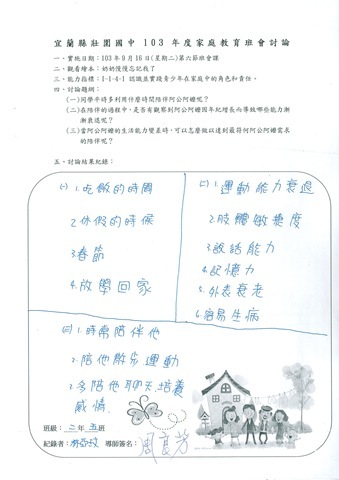 宜蘭縣壯圍國中 103 年度家庭教育班會討論
一、實施日期：103 年 9 月 16 日(星期二)第六節班會課
二、觀看繪本：奶奶慢慢忘記我了
三、能力指標：1-1-4-1 認識並實踐青少年在家庭中的角色和責任。
四、討論題綱：
(一)同學平時多利用什麼時間陪伴阿公阿嬤呢？
(二)在陪伴的過程中，是否有觀察到阿公阿嬤因年紀增長而導致哪些能力漸
漸衰退呢？
(三)當阿公阿嬤的生活能力變差時，可以怎麼做以達到最符何阿公阿嬤需求
的陪伴呢？
五、討論結果紀錄：
(一) 1.吃飯的時間
2.休假的時候
3.春節
4.放學回家
(二) 1.運動能力衰退
2.肢體敏捷度
3.說話能力
4.記憶力
5.外表衰老
6.容易生病
(三) 1.時常陪伴他
2.陪他散步運動
3.多陪他聊天培養
感情.
班級：二年五班
紀錄者：
導師簽名：周